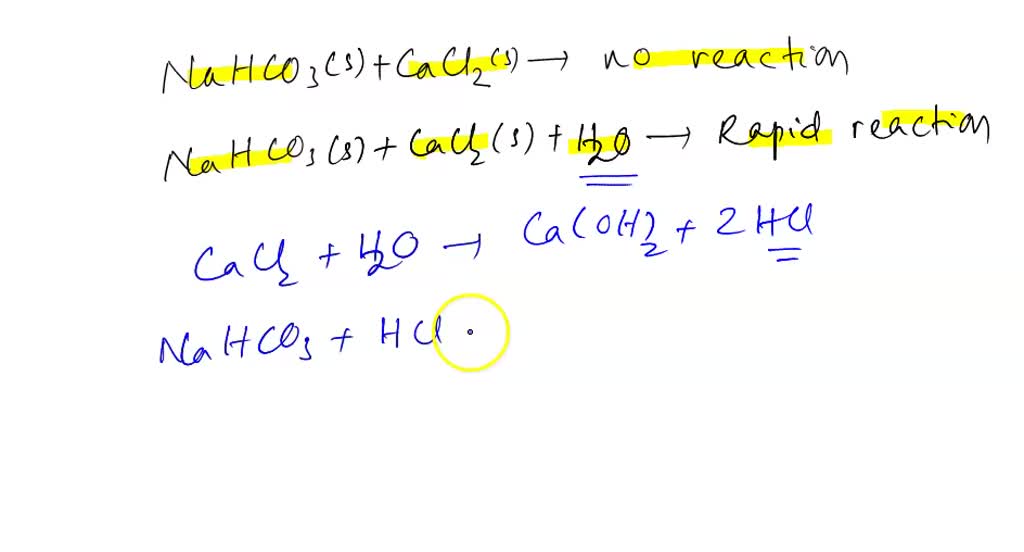 NaHCO₃(s) + CaCl₂(s) → no reaction
NaHCO₃(s) + CaCl₂(s) + H₂O → Rapid reaction
CaCl₂ + H₂O → Ca(OH)₂ + 2HCl
NaHCO₃ + HCl